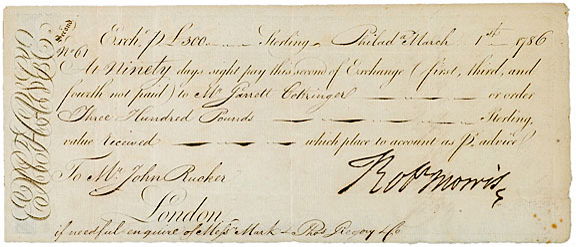 Second
Exch. p £300 Sterling Philada. March 1st 1786
No. 61
At Ninety days sight pay this second of Exchange (first, third, and
fourth not paid) to Mr. Garrett Cottringer or order
Three Hundred Pounds Sterling,
value received which place to account as p. advice
To Mr. John Rucker
Robt Morris
London
if needful enquire of Messrs. Mark & Thos Gregory & Co